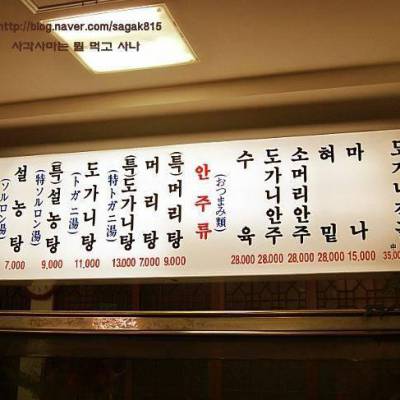 http://blog.naver.com/sagak815
사각사마는 뭘 먹고 사나
설농탕
(ソルロン湯)
7,000
(특)설농탕
(特ソルロン湯)
9,000
도가니탕
(トガニ湯)
11,000
(특)도가니탕
(特トガニ湯)
13,000
머리탕
7,000
(특)머리탕
9,000
안주류
(おつまみ類)
수육
28,000
도가니안주
28,000
소머리안주
28,000
혀밑
28,000
마나
15,000
35,000